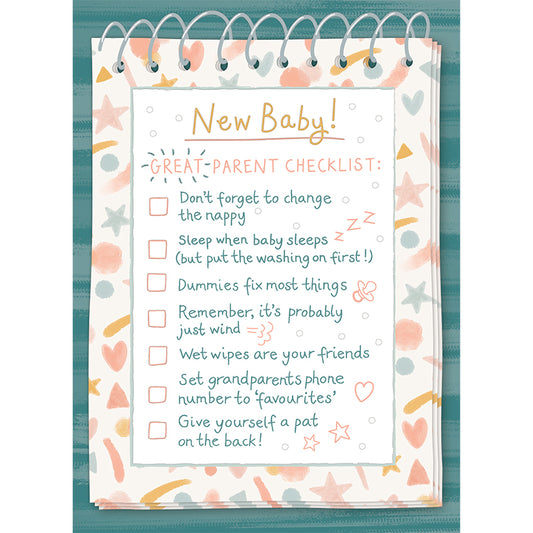 New Baby!
GREAT PARENT CHECKLIST:
Don't forget to change
the nappy
Sleep when baby sleeps zzz
(but put the washing on first!)
Dummies fix most things
Remember, it's probably
just wind
Wet wipes are your friends
Set grandparents phone
number to 'favourites'
Give yourself a pat
on the back!